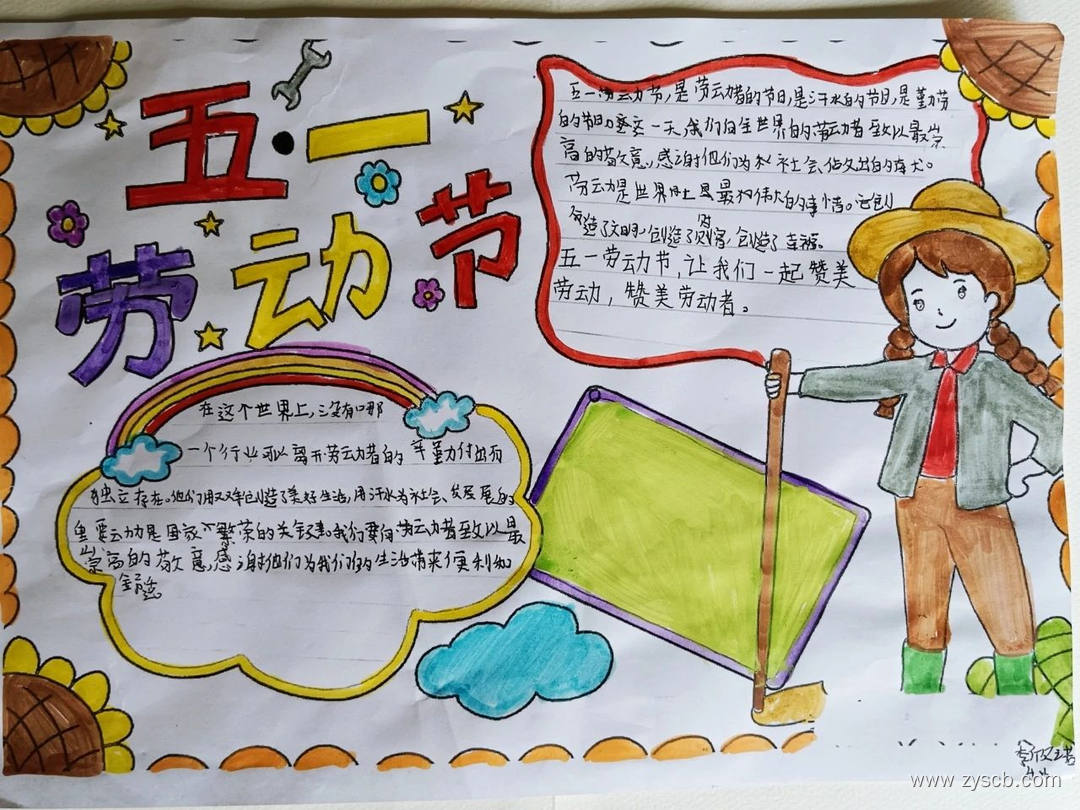 五·一
劳动节
五一劳动节,是劳动者的节日,是汗水的节日,是勤劳
的节日。在这一天,我们向全世界的劳动者致以最崇
高的敬意,感谢他们为社会付出的
劳动是世界上最伟大的事情。它创
造了文明,创造了财富,创造了幸福。
五一劳动节,让我们一起赞美
劳动,赞美劳动者。
在这个世界上,没有哪
一个行业可以离开劳动者的辛勤付出而
独立存在。他们用双手创造了美好生活,用汗水为社会、发展
重要动力是国家繁荣的关键。我们要向劳动者致以最
崇高的敬意,感谢他们为我们的生活带来便利和
舒适
www.zyscb.com